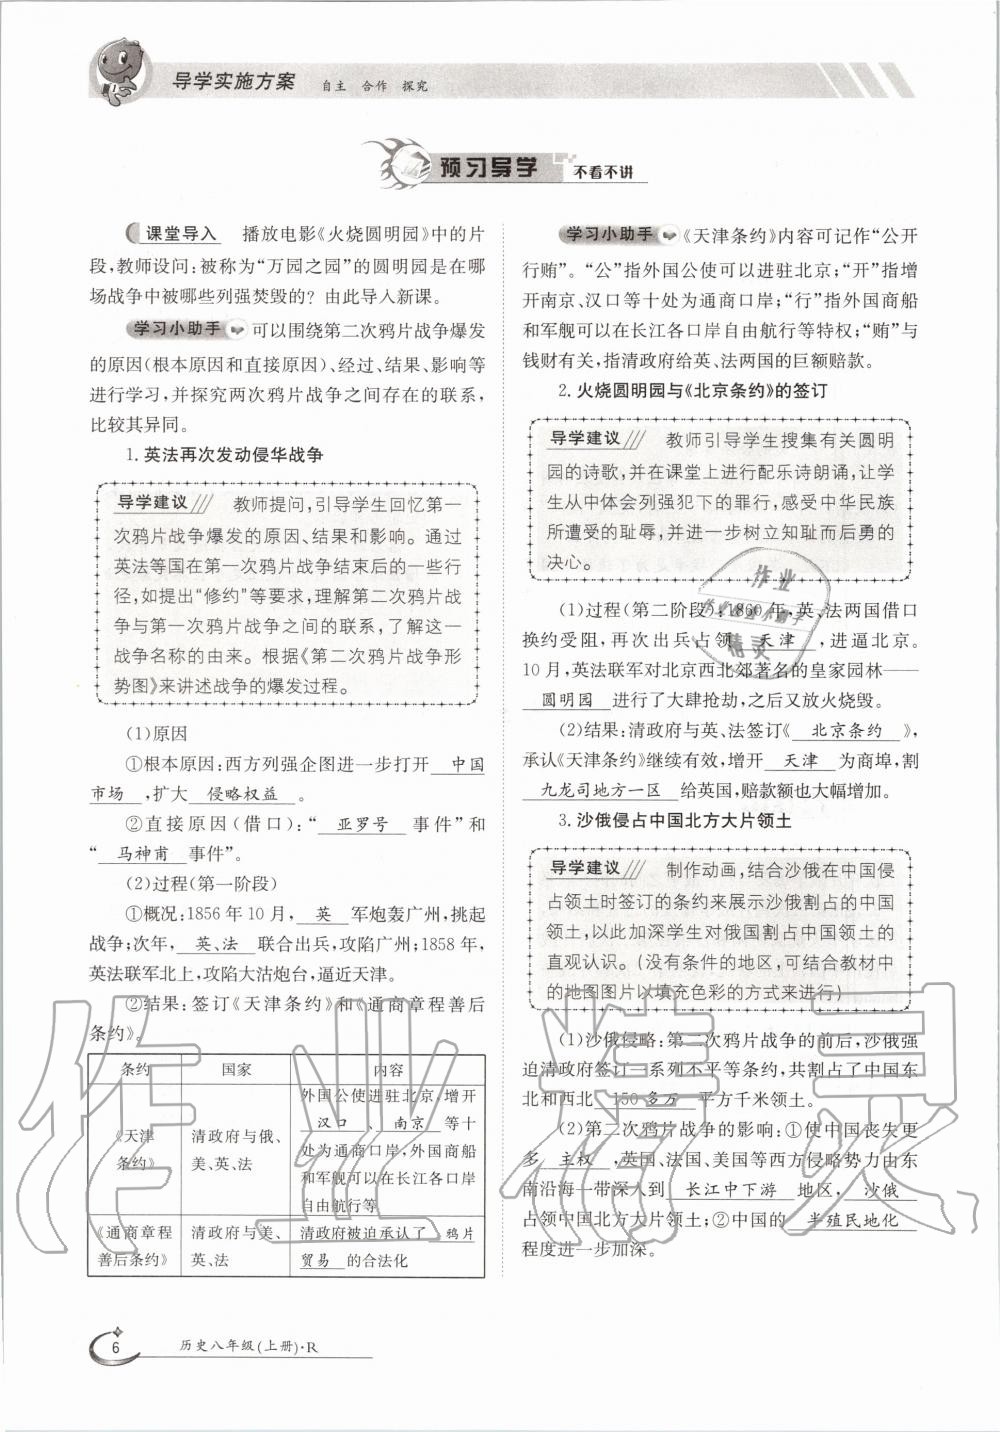 导学实施方案 自主 合作 探究
预习导学 不看不讲
课堂导入 播放电影《火烧圆明园》中的片
段,教师设问:被称为“万园之园”的圆明园是在哪
场战争中被哪些列强焚毁的？由此导入新课。
学习小助手 可以围绕第二次鸦片战争爆发
的原因(根本原因和直接原因)、经过、结果、影响等
进行学习,并探究两次鸦片战争之间存在的联系,
比较其异同。
1. 英法再次发动侵华战争
导学建议 教师提问,引导学生回忆第一
次鸦片战争爆发的原因、结果和影响。通过
英法等国在第一次鸦片战争结束后的一些行
径,如提出“修约”等要求,理解第二次鸦片战
争与第一次鸦片战争之间的联系,了解这一
战争名称的由来。根据《第二次鸦片战争形
势图》来讲述战争的爆发过程。
(1)原因
①根本原因:西方列强企图进一步打开 中国
市场 ,扩大 侵略权益 。
②直接原因(借口):“ 亚罗号 事件”和
“ 马神甫 事件”。
(2)过程(第一阶段)
①概况:1856年10月, 英 军炮轰广州,挑起
战争;次年, 英、法 联合出兵,攻陷广州;1858年,
英法联军北上,攻陷大沽炮台,逼近天津。
②结果:签订《天津条约》和《通商章程善后
条约》。
条约 国家 内容
《天津
条约》
清政府与俄、
美、英、法
外国公使进驻北京,增开
汉口 、 南京 等十
处为通商口岸,外国商船
和军舰可以在长江各口岸
自由航行等
《通商章程
善后条约》
清政府与美、
英、法
清政府被迫承认了 鸦片
贸易 的合法化
学习小助手 《天津条约》内容可记作“公开
行贿”。“公”指外国公使可以进驻北京;“开”指增
开南京、汉口等十处为通商口岸;“行”指外国商船
和军舰可以在长江各口岸自由航行等特权;“贿”与
钱财有关,指清政府给英、法两国的巨额赔款。
2. 火烧圆明园与《北京条约》的签订
导学建议 教师引导学生搜集有关圆明
园的诗歌,并在课堂上进行配乐诗朗诵,让学
生从中体会列强犯下的罪行,感受中华民族
所遭受的耻辱,并进一步树立知耻而后勇的
决心。
(1)过程(第二阶段):1860年,英、法两国借口
换约受阻,再次出兵占领 天津 ,进逼北京。
10月,英法联军对北京西北郊著名的皇家园林——
圆明园 进行了大肆抢劫,之后又放火烧毁。
(2)结果:清政府与英、法签订《 北京条约 》,
承认《天津条约》继续有效,增开 天津 为商埠,割
九龙司地方一区 给英国,赔款额也大幅增加。
3. 沙俄侵占中国北方大片领土
导学建议 制作动画,结合沙俄在中国侵
占领土时签订的条约来展示沙俄割占的中国
领土,以此加深学生对俄国割占中国领土的
直观认识。(没有条件的地区,可结合教材中
的地图图片以填充色彩的方式来进行)
(1)沙俄侵略:第二次鸦片战争的前后,沙俄强
迫清政府签订一系列不平等条约,共割占了中国东
北和西北 150多万 平方千米领土。
(2)第二次鸦片战争的影响:①使中国丧失更
多 主权 ,英国、法国、美国等西方侵略势力由东
南沿海一带深入到 长江中下游 地区, 沙俄
占领中国北方大片领土;②中国的 半殖民地化
程度进一步加深。
作业
精灵
作业精灵
6 历史八年级(上册)·R